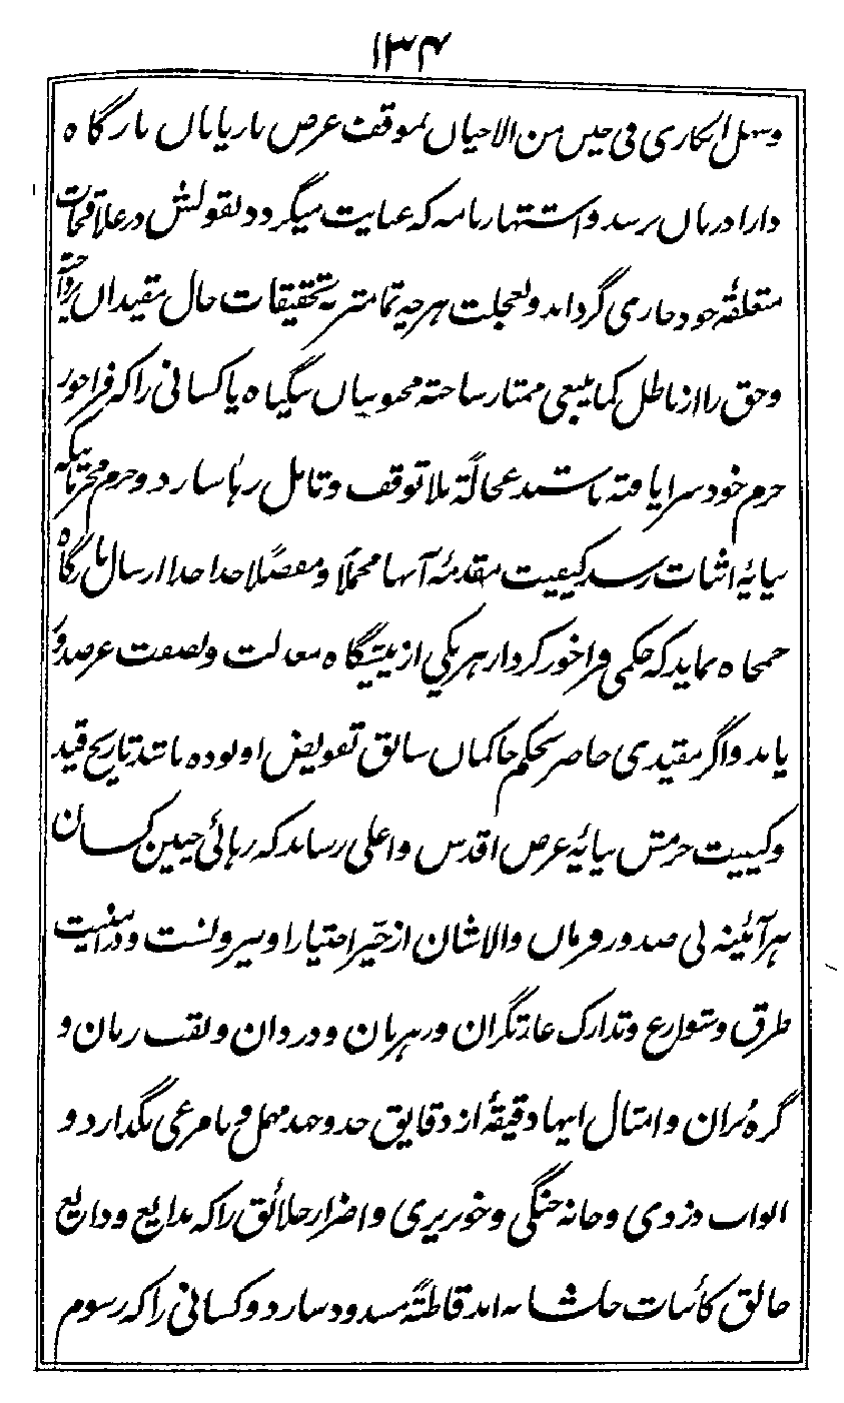 ۱۳۴
و سهل انکاری فی حین من الاحیان بموقف عرض باریابان بارگاه
دارا دربان برسد و اشتهارنامه که عنایت میگردد بقولش در علاقجات
متعلقهٔ خود جاری گرداند و بعجلت هرچه تمامتر بتحقیقات حال مقیدان پرداخته
و حق را از باطل کما ینبغی ممتاز ساخته محبوسان بیگیاه یا کسانی را که فراخور
جرم خود سزا یافته باشند عجالةً بلا توقف و تامل رها سازد و جرم مجرمانیکه
بپایهٔ اثبات رسد کیفیت مقدمهٔ آنها مجملاً و مفصلاً جدا جدا ارسال بارگاه
جمجاه نماید که حکمی فراخور کردار هریکی از پیشگاه معدلت و نصفت عرصدور
یابد و اگر مقیدی حاضر بحکم حاکمان سابق تفویض او بوده باشد تاریخ قید
و کیفیت جرمش بپایهٔ عرض اقدس و اعلی رساند که رهائی چنین کسان
هرآئینه بی صدور فرمان والاشان از حیز اختیار او بیرونست و در امنیت
طرق و شوارع و تدارک غارتگران و رهزنان و دزدان و نقب زنان و
گره بران و امثال اینها دقیقهٔ از دقایق جد و جهد مهمل و نامرعی نگذارد و
ابواب دزدی و خانه جنگی و خونریزی و اضرار خلائق را که بدایع و دایع
خالق کائنات جلشانه اند قاطبةً مسدود سازد و کسانی را که رسوم